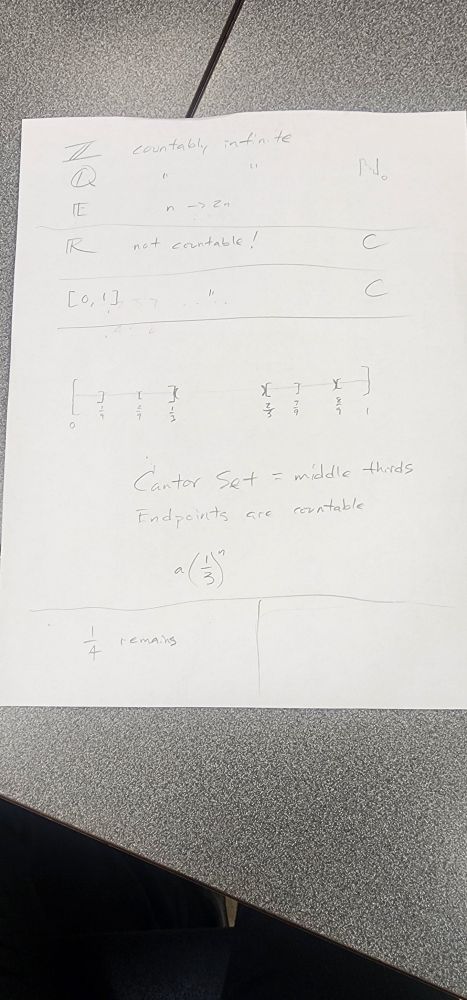 ℤ countably infinite
ℚ " " ℵ₀
𝔼 n → 2n
ℝ not countable! C
[0, 1] " C
[ ] [ ] [ ] [ ]
0 1/9 2/9 1/3 2/3 7/9 8/9 1
Cantor Set = middle thirds
Endpoints are countable
a(1/3)ⁿ
1/4 remains